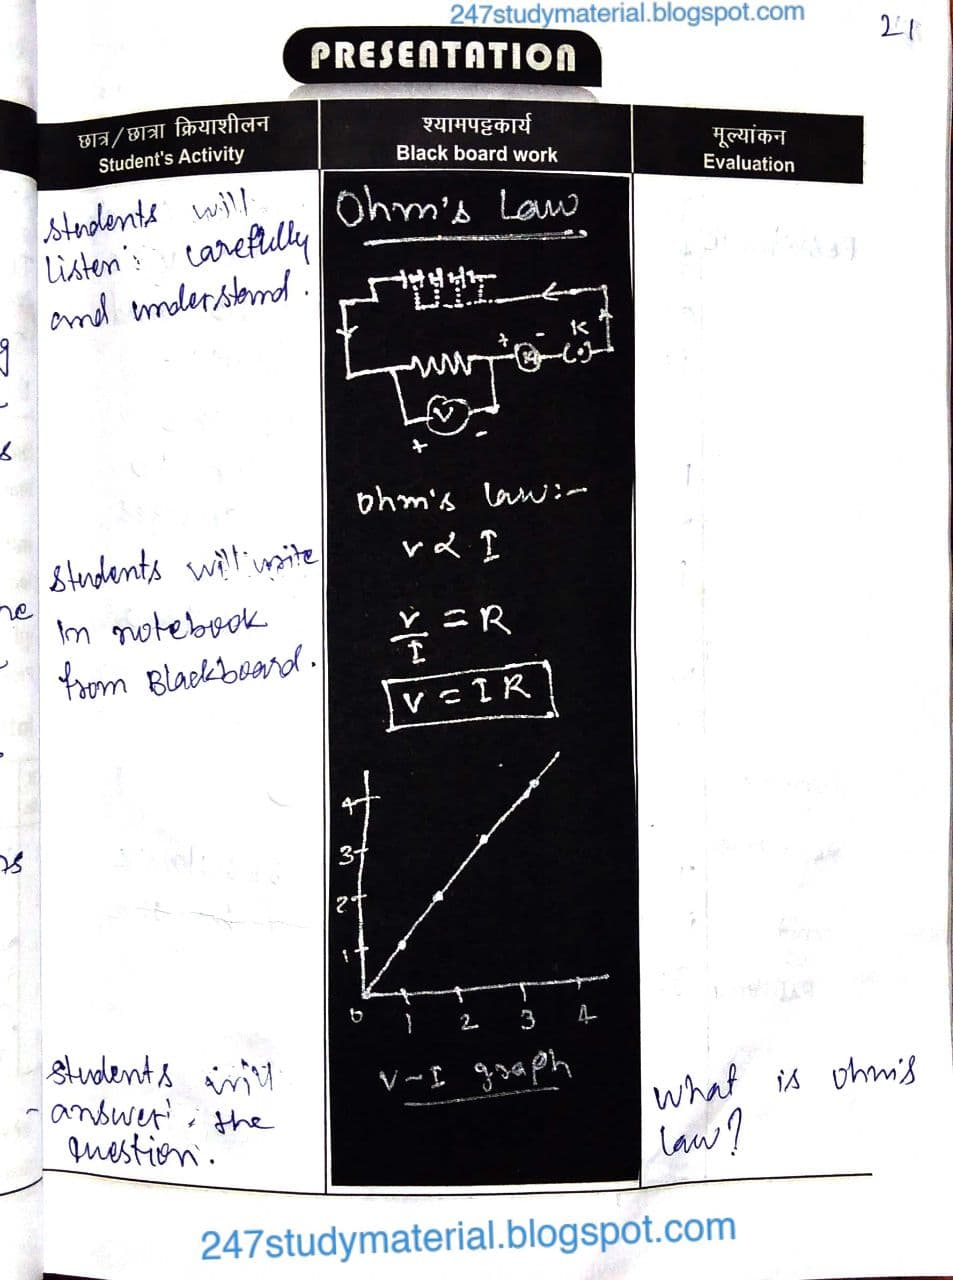 247studymaterial.blogspot.com
21
PRESENTATION
छात्र/छात्रा क्रियाशीलन
Student's Activity
श्यामपट्टकार्य
Black board work
मूल्यांकन
Evaluation
Students will
listen carefully
and understand.
Ohm's Law
K
+ -
V
+ -
Ohm's law:-
V ∝ I
V/I = R
V = IR
Students will write
In notebook
from Blackboard.
4
3
2
1
0 1 2 3 4
V-I graph
Students will
answer the
question.
What is ohm's
law?
247studymaterial.blogspot.com